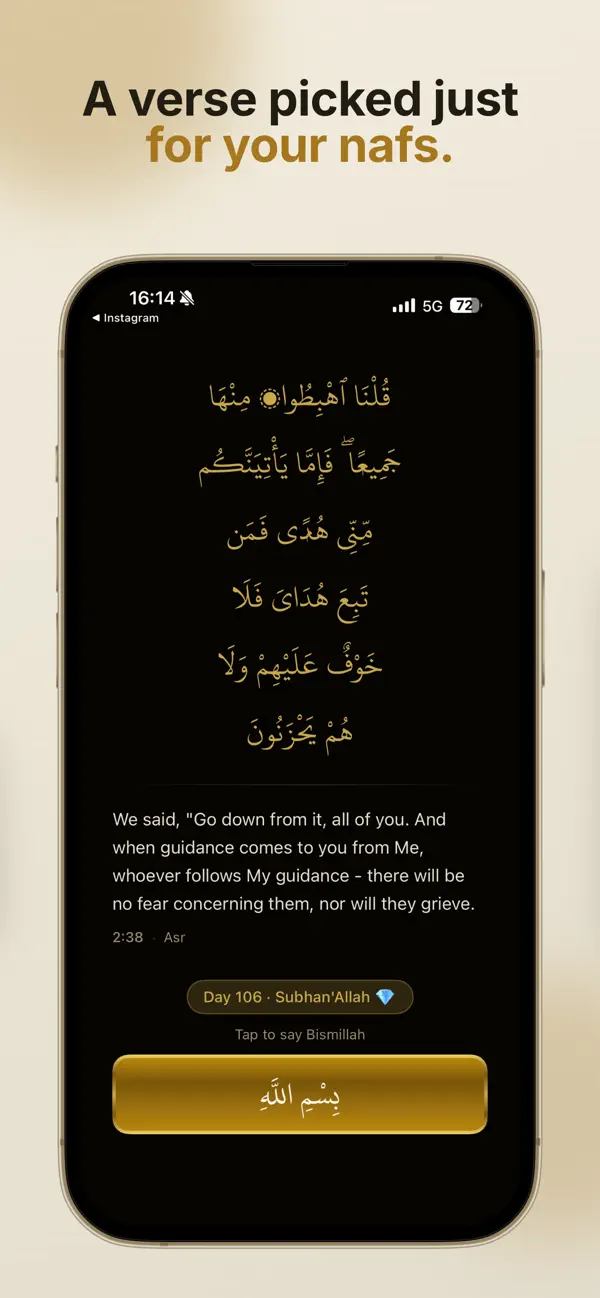 A verse picked just
for your nafs.
16:14
5G
72
◀ Instagram
قُلْنَا ٱهْبِطُوا۟ مِنْهَا
جَمِيعًا ۖ فَإِمَّا يَأْتِيَنَّكُم
مِّنِّى هُدًى فَمَن
تَبِعَ هُدَاىَ فَلَا
خَوْفٌ عَلَيْهِمْ وَلَا
هُمْ يَحْزَنُونَ
We said, "Go down from it, all of you. And
when guidance comes to you from Me,
whoever follows My guidance - there will be
no fear concerning them, nor will they grieve.
2:38 · Asr
Day 106 · Subhan'Allah 💎
Tap to say Bismillah
بِسْمِ اللَّهِ